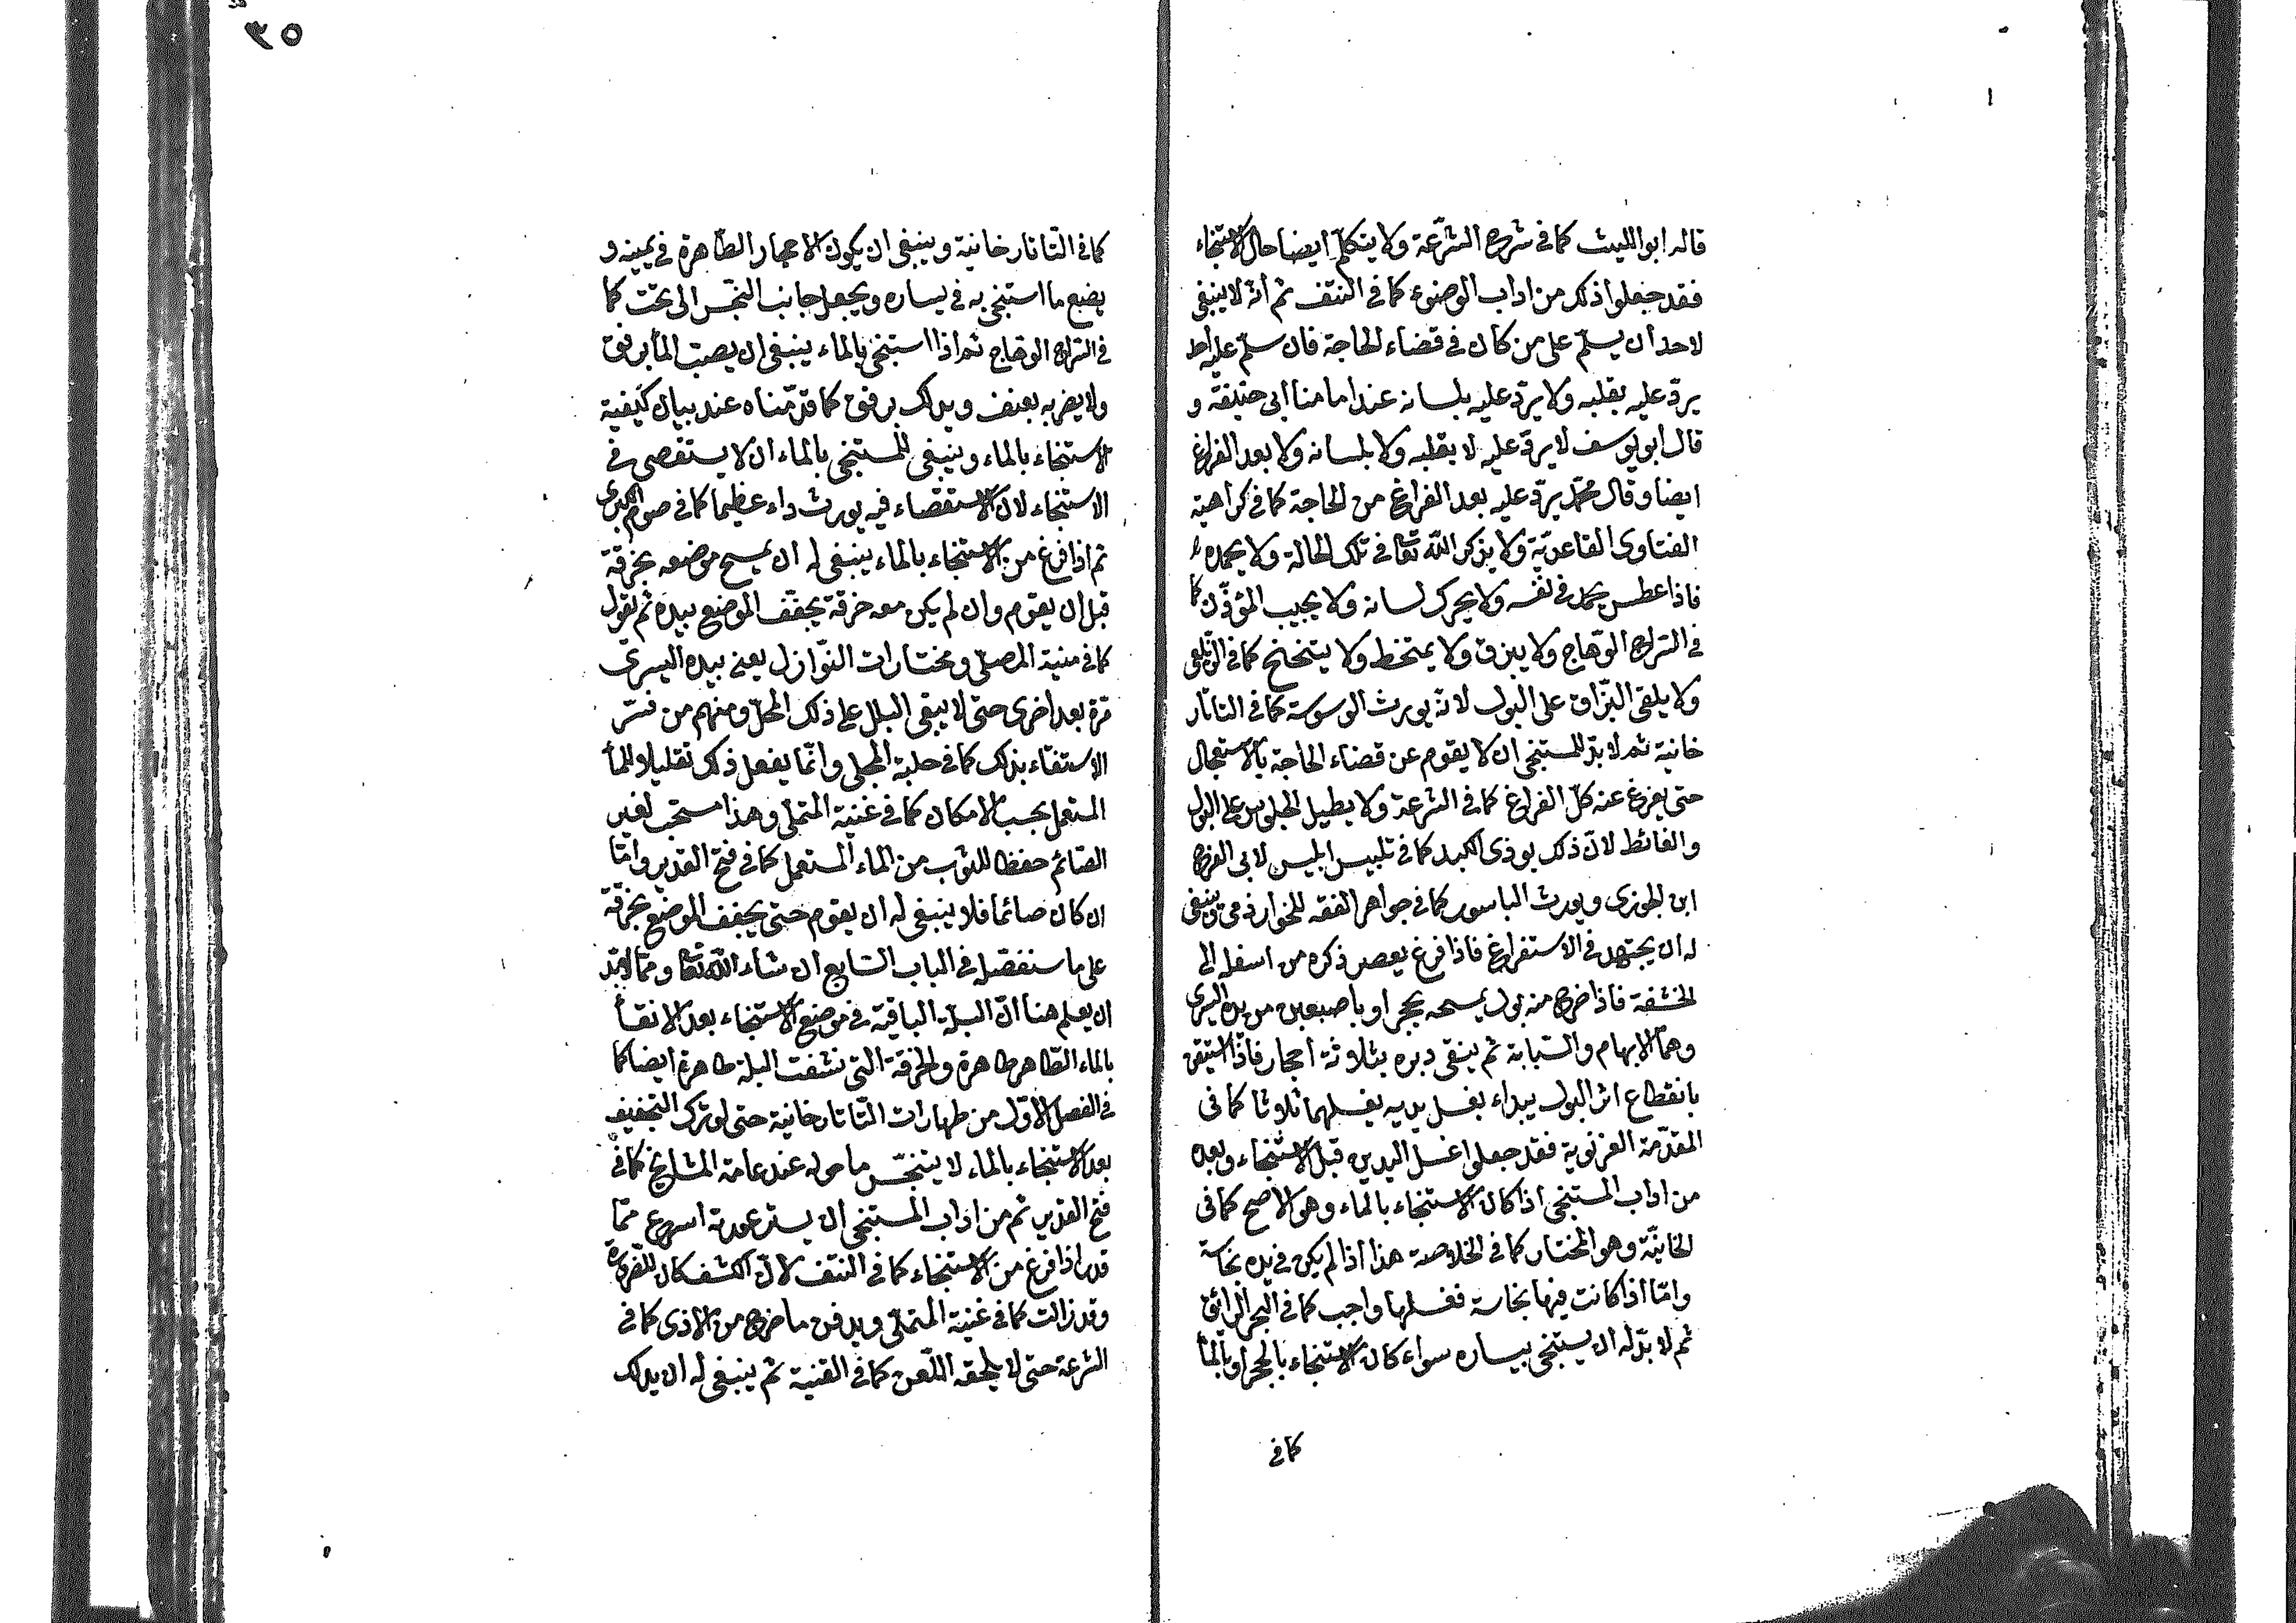 قاله ابو الليث كما فى شرح الشرعة ولا يتكلم ايضا حال الاستنجاء
فقد جعلوا ذلك من اداب الوضوء كما فى النتف ثم انه لا ينبغى
لاحد ان يسلم على من كان فى قضاء الحاجة فان سلم عليه احد
يردّ عليه بقلبه ولا يردّ عليه بلسانه عند امامنا ابى حنيفة و
قال ابو يوسف لا يردّ عليه لا بقلبه ولا بلسانه ولا بعد الفراغ
ايضا وقال محمد يردّ عليه بعد الفراغ من الحاجة كما فى كراهية
الفتاوى القاعديّة ولا يذكر الله تعا فى تلك الحالة ولا يحمده
فاذا عطس يحمد فى نفسه ولا يحرك لسانه ولا يجيب المؤذّن كما
فى السّراج الوهاج ولا يبزق ولا يمتخط ولا يتنحنح كما فى الزيلعى
ولا يلقى البزّاق على البول لانه يورث الوسوسة كما فى التاتار
خانية ثم لا بدّ للمستنجى ان لا يقوم عن قضاء الحاجة بالاستعجال
حتى يفرغ عنه كلّ الفراغ كما فى الشرعة ولا يطيل الجلوس على البول
والغائط لانّ ذلك يوذى الكبد كما فى تلبيس ابليس لابى الفرج
ابن الجوزى ويورث الباسور كما فى جواهر الفقه للخوارزمى وينبغى
له ان يجتهد فى الاستفراغ فاذا فرغ يعصر ذكره من اسفله الى
الحشفة فاذا خرج منه بول يمسحه بحجر او باصبعين من يده اليسرى
وهما الابهام والسّبابة ثم ينقى دبره بثلاثة احجار فاذا استيقن
بانقطاع اثر البول يبداء بغسل يديه يغسلهما ثلاثا كما فى
المقدّمة الغزنوية فقد جعلوا غسل اليدين قبل الاستنجاء وبعده
من اداب المستنجى اذا كان الاستنجاء بالماء وهو الاصح كما فى
الخانيّة وهو المختار كما فى الخلاصة هذا اذا لم يكن فى يده نجاسة
وامّا اذا كانت فيها نجاسة فغسلها واجب كما فى البحر الرائق
ثم لا بدّ له ان يستنجى بيساره سواء كان الاستنجاء بالحجر او بالماء
كما فى
٣٥
كما فى التّاتارخانية وينبغى ان يكون الاحجار الطّاهرة فى يمينه و
يضع ما استنجى به فى يساره ويجعل جانب النّجس الى تحت كما
فى السّراج الوهاج ثم اذا استنجى بالماء ينبغى ان يصبّ الماء برفق
ولا يضربه بعنف ويدلك برفق كما قدّمناه عند بيان كيفية
الاستنجاء بالماء وينبغى للمستنجى بالماء ان لا يستقصى فى
الاستنجاء لان الاستقصاء فيه يورث داء عظيما كما فى صوم الكبرى
ثم اذا فرغ من الاستنجاء بالماء ينبغى له ان يمسح موضعه بخرقة
قبل ان يقوم وان لم يكن معه خرقة يجفّف الموضع بيده ثم يقول
كما فى منية المصلى ومختارات النّوازل يعنى بيده اليسرى
مرّة بعد اخرى حتى لا يبقى البلل على ذلك المحلّ ومنهم من فسّر
الاستنقاء بذلك كما فى حلية المجلى وانّما يفعل ذلك تقليلا للماء
المستعمل بحسب الامكان كما فى غنية المتملى وهذا مستحب لغير
الصّائم حفظا للثوب من الماء المستعمل كما فى فتح القدير وامّا
ان كان صائما فلا ينبغى له ان يقوم حتى يجفف الموضع بخرقة
على ما سنفصّل فى الباب السّابع ان شاء الله تعا وممّا لا بدّ
ان يعلم هنا انّ البلّة الباقية فى موضع الاستنجاء بعد الانقاء
بالماء الطّاهر طاهرة والخرقة التى نشفت البلة طاهرة ايضا كما
فى الفصل الاوّل من طهارات التّاتارخانية حتى لو ترك التجفيف
بعد الاستنجاء بالماء لا يتنجّس ما حوله عند عامة المشايخ كما فى
فتح القدير ثم من اداب المستنجى ان يستر عورته اسرع ممّا
قدر اذا فرغ من الاستنجاء كما فى النتف لانّ الكشف كان للضرورة
وقد زالت كما فى غنية المتملّى ويدفن ما خرج من الاذى كما فى
الشرعة حتى لا يلحقه اللّعن كما فى القنية ثم ينبغى له ان يدلك